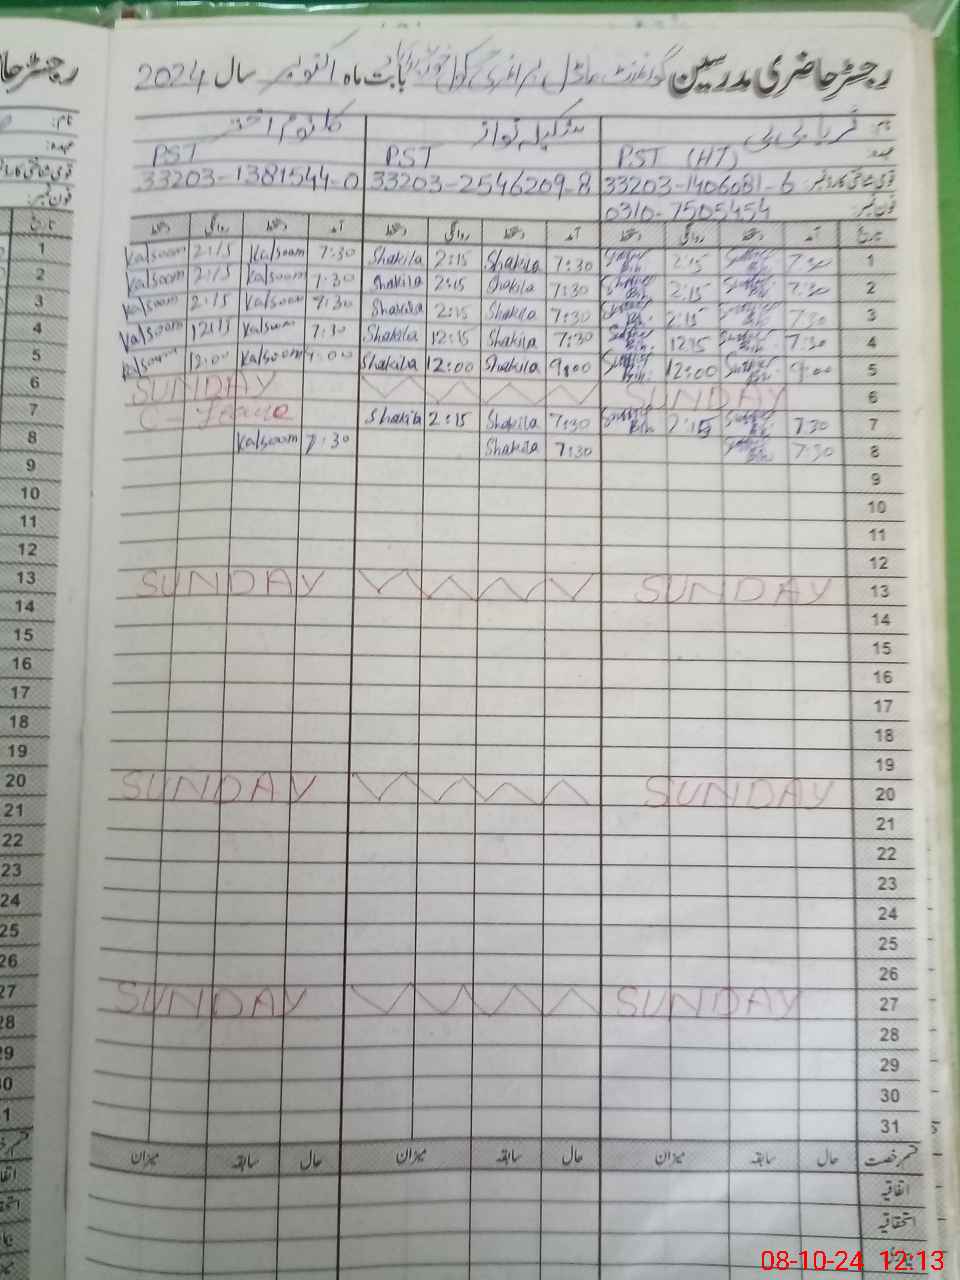 رجسٹر حاضری مدرسین گورنمنٹ ماڈل پرائمری سکول بابت ماہ اکتوبر سال 2024
نام: ثریا بی بی شکیلہ نواز کلثوم اختر
عہدہ: PST (HT) PST PST
قومی شناختی کارڈ نمبر: 33203-1406081-6 33203-2546209-8 33203-1381544-0
فون نمبر: 0310-7505454
تاریخ آمد دستخط روانگی دستخط آمد دستخط روانگی دستخط آمد دستخط روانگی دستخط تاریخ
1 Kalsoom 2:15 Kalsoom 7:30 Shakila 2:15 Shakila 7:30 2:15 7:30 1
2 Kalsoom 2:15 Kalsoom 7:30 Shakila 2:15 Shakila 7:30 2:15 7:30 2
3 Kalsoom 2:15 Kalsoom 7:30 Shakila 2:15 Shakila 7:30 2:15 7:30 3
4 Kalsoom 12:15 Kalsoom 7:30 Shakila 12:15 Shakila 7:30 12:15 7:30 4
5 Kalsoom 12:00 Kalsoom 9:00 Shakila 12:00 Shakila 9:00 12:00 9:00 5
6 SUNDAY SUNDAY 6
7 C-Leave Shakila 2:15 Shakila 7:30 2:15 7:30 7
8 Kalsoom 7:30 Shakila 7:30 7:30 8
9 9
10 10
11 11
12 12
13 SUNDAY SUNDAY 13
14 14
15 15
16 16
17 17
18 18
19 19
20 SUNDAY SUNDAY 20
21 21
22 22
23 23
24 24
25 25
26 26
27 SUNDAY SUNDAY 27
28 28
29 29
30 30
31
قسم رخصت حال سابقہ میزان حال سابقہ میزان حال سابقہ میزان
اتفاقیہ
استحقاقیہ
08-10-24 12:13